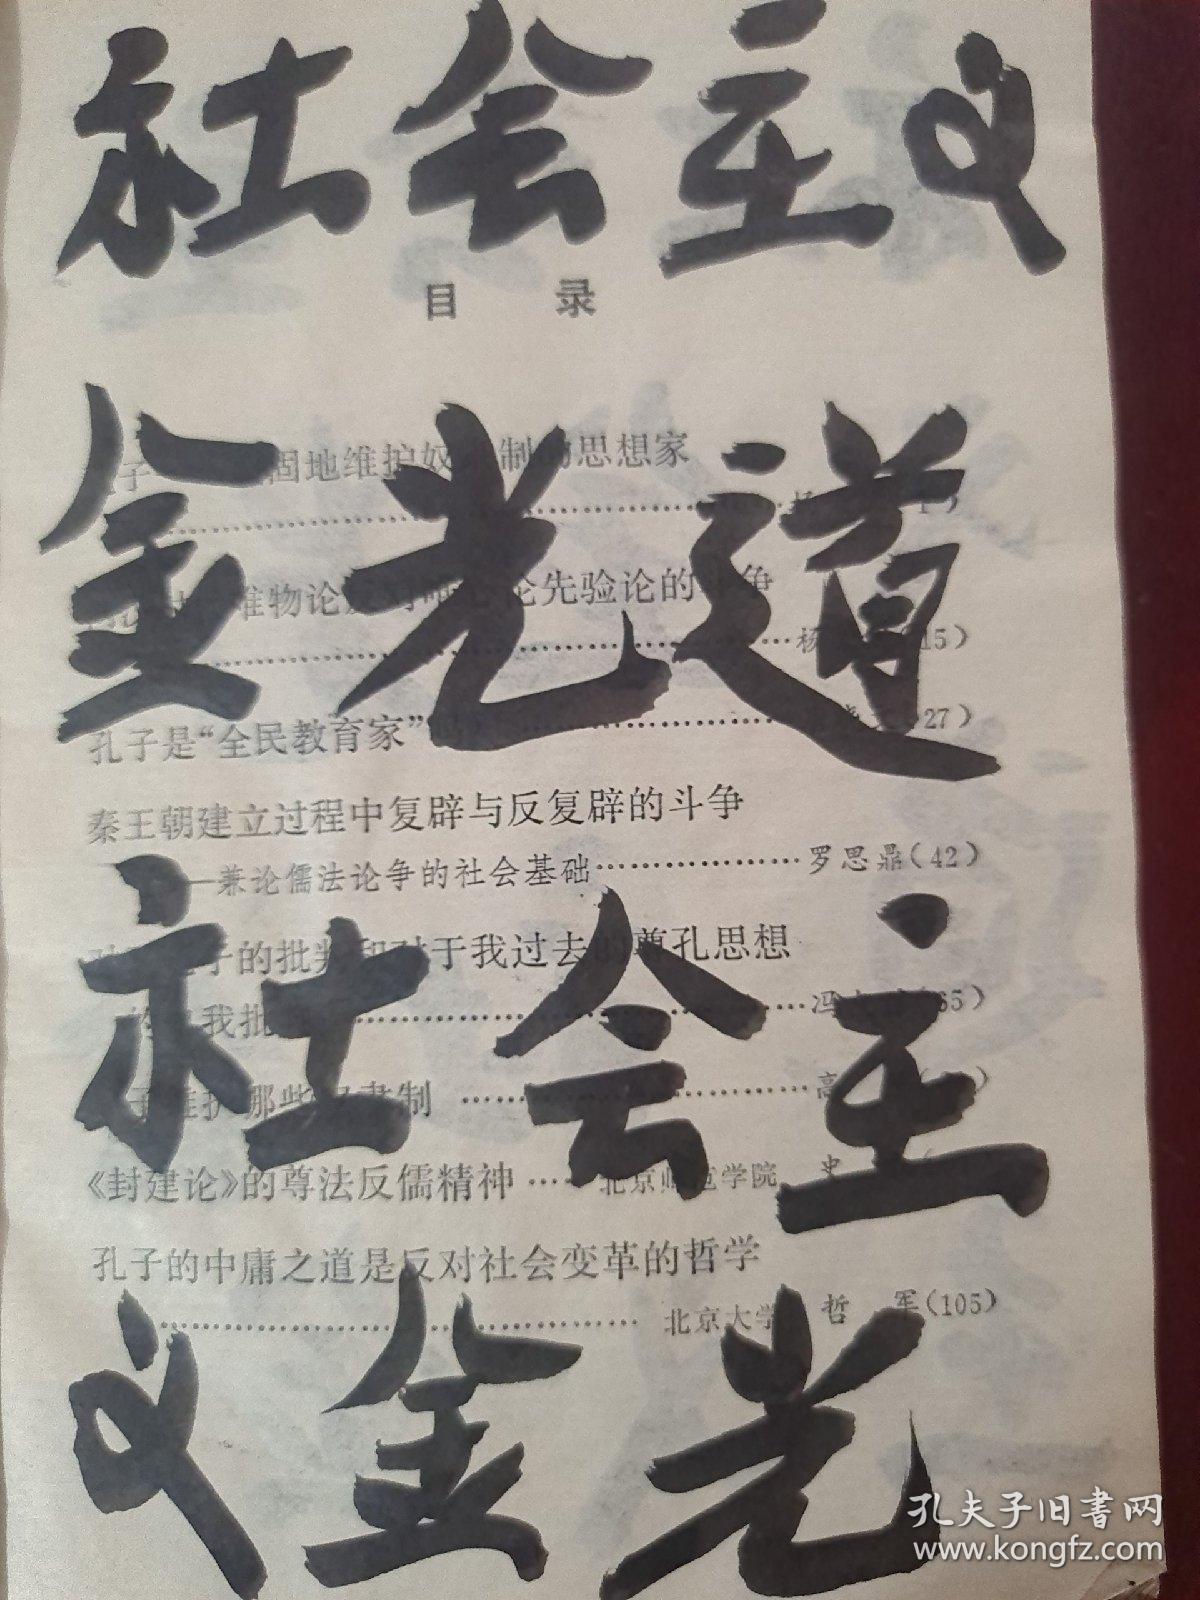 社会主义
目 录
金光道
固地维护奴 制 思想家
物论 论先验论的 争
杨 15)
孔子是“全民教育家” 27)
秦王朝建立过程中复辟与反复辟的斗争
兼论儒法论争的社会基础………………罗思鼎(42)
社会主
子的批判和对于我过去的尊孔思想
我批 冯 65)
那些 制 ………………………… 高
《封建论》的尊法反儒精神…… 北京师范学院 史
孔子的中庸之道是反对社会变革的哲学
………………………………… 北京大学 哲 军(105)
义金光
孔夫子旧书网
www.kongfz.com